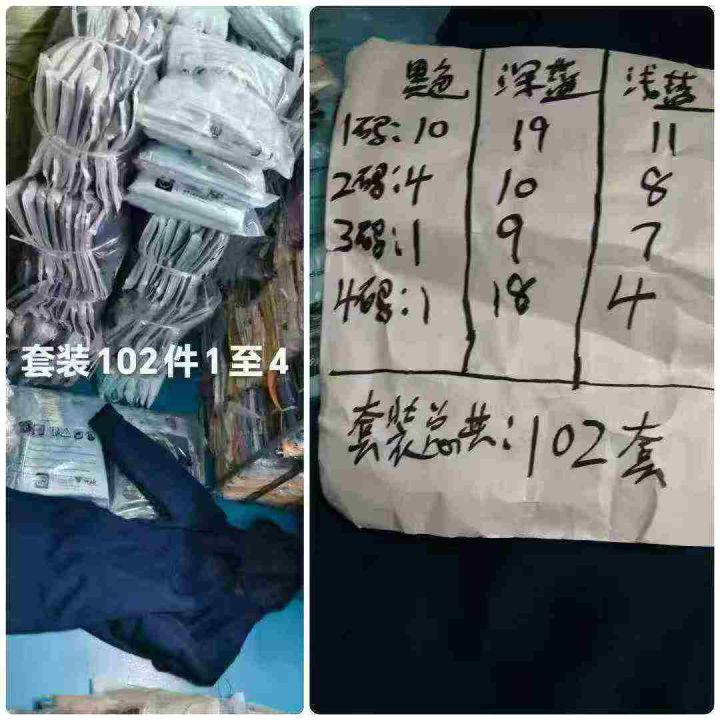 套装102件1至4
黑色 深蓝 浅蓝
1码:10 19 11
2码:4 10 8
3码:1 9 7
4码:1 18 4
套装总共:102套